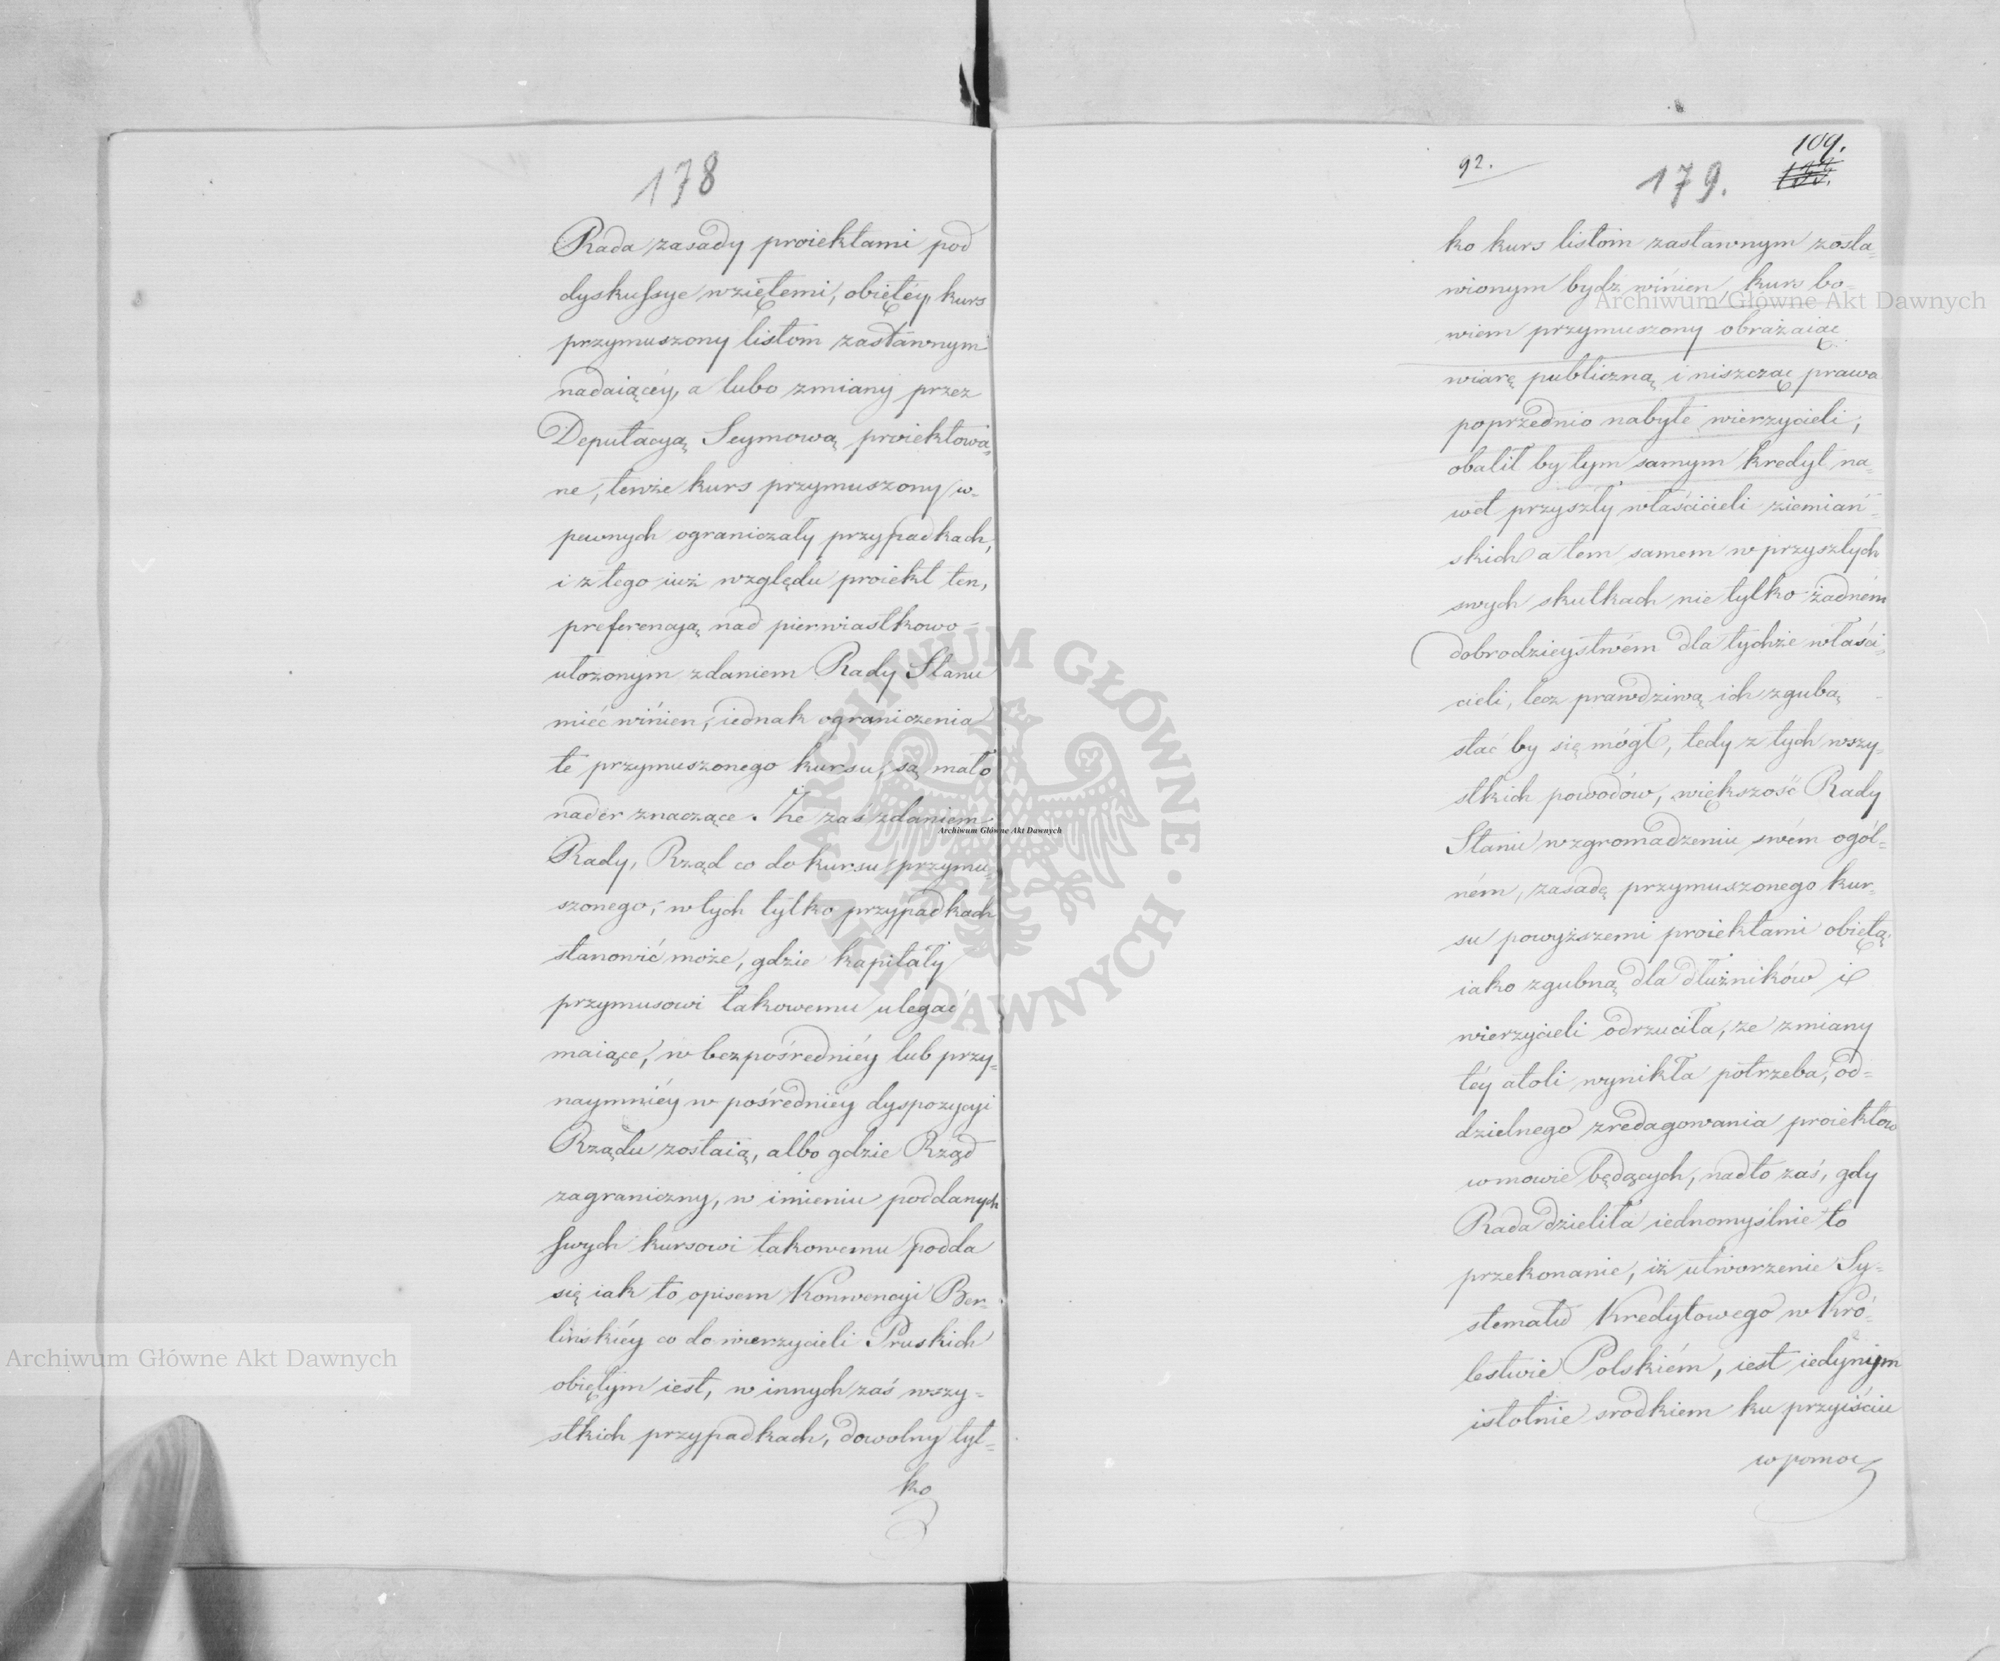 178
Rada zasady proiektami pod
dyskussye wziętemi, obiętéy, kurs
przymuszony listom zastawnym
nadaiącéy, a lubo zmiany przez
Deputacyą Seymową proiektowa„
ne, tenże kurs przymuszony w„
pewnych ograniczały przypadkach,
i z tego iuż względu proiekt ten,
preferencyą nad pierwiastkowo
ułożonym zdaniem Rady Stanu
mieć winien, iednak ograniczenia
te przymuszonego kursu, są mało
nader znaczące. Że zaś zdaniem
Rady, Rząd co do kursu przymu„
szonego, w tych tylko przypadkach
stanowić może, gdzie kapitały
przymusowi takowemu ulegać
maiące, w bezpośredniéy lub przy„
naymniéy w pośredniéy dyspozycyi
Rządu zostaią, albo gdzie Rząd
zagraniczny, w imieniu poddanych
swych kursowi takowemu podda
się iak to opisem Konwencyi Ber„
lińskiéy co do wierzycieli Pruskich
obiętym iest, w innych zaś wszy„
stkich przypadkach, dowolny tyl„
ko
92.
179.
109.
133.
ko kurs listom zastawnym zosta„
wionym bydź winien, kurs bo„
wiem przymuszony obrażaiąc
wiarę publiczną i niszcząc prawa
poprzednio nabyte wierzycieli,
obalił by tym samym kredyt na„
wet przyszły właścicieli ziemiań„
skich a tem samem w przyszłych
swych skutkach nie tylko żadném
dobrodzieystwém dla tychże właści„
cieli, lecz prawdziwą ich zgubą
stać by się mógł, tedy z tych wszy„
stkich powodów, większość Rady
Stanu w zgromadzeniu swém ogól„
ném, zasadę przymuszonego kur„
su powyższemi proiektami obiętą
iako zgubną dla dłużników i
wierzycieli odrzuciła, ze zmiany
téy atoli wynikła potrzeba, od„
dzielnego zredagowania proiektów
w mowie będących, nadto zaś, gdy
Rada dzieliła iednomyślnie to
przekonanie, iż utworzenie Sy„
stematu Kredytowego w Kró„
lestwie Polskiém, iest iedynym
istotnie srodkiem ku przyiściu
w pomoc
Archiwum Główne Akt Dawnych
Archiwum Główne Akt Dawnych
Archiwum Główne Akt Dawnych
ARCHIWUM GŁÓWNE · AKT DAWNYCH ·